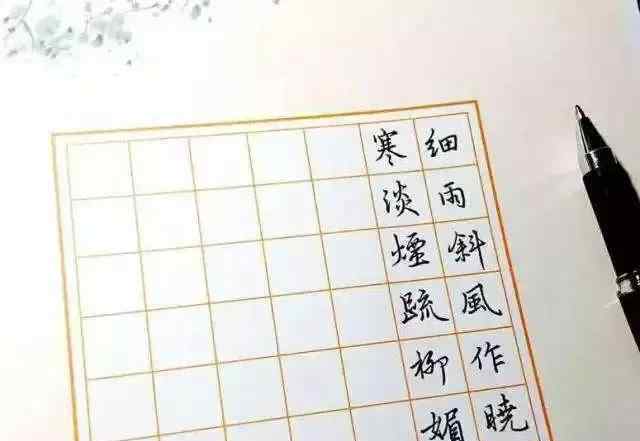 細雨斜風作曉
寒淡煙疏柳媚